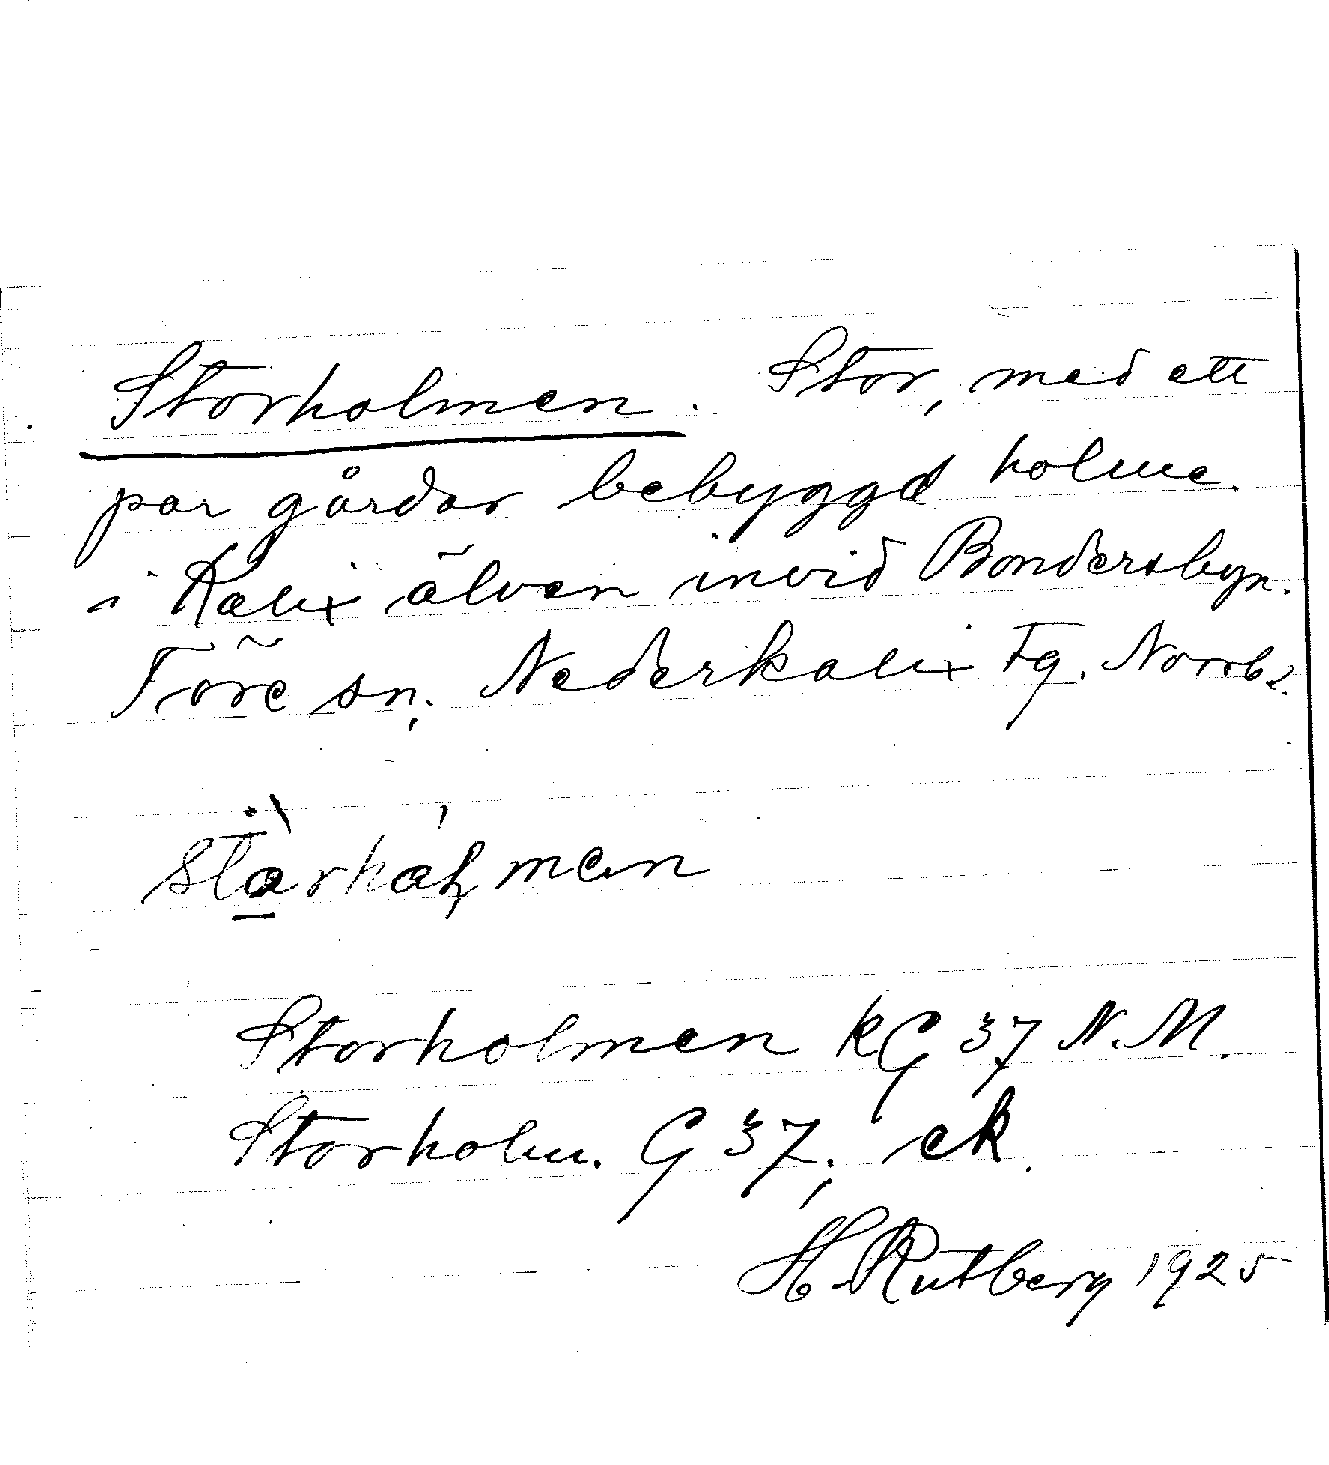 Storholmen. Stor, med ett
par gårdar bebyggd holme.
i Kalix älven invid Bondersbyn.
Töre sn; Nederkalix Tg. Norrb l.
Storholmen kG 37 N.M.
Storholm. G 37; ek.
H. Rutberg 1925